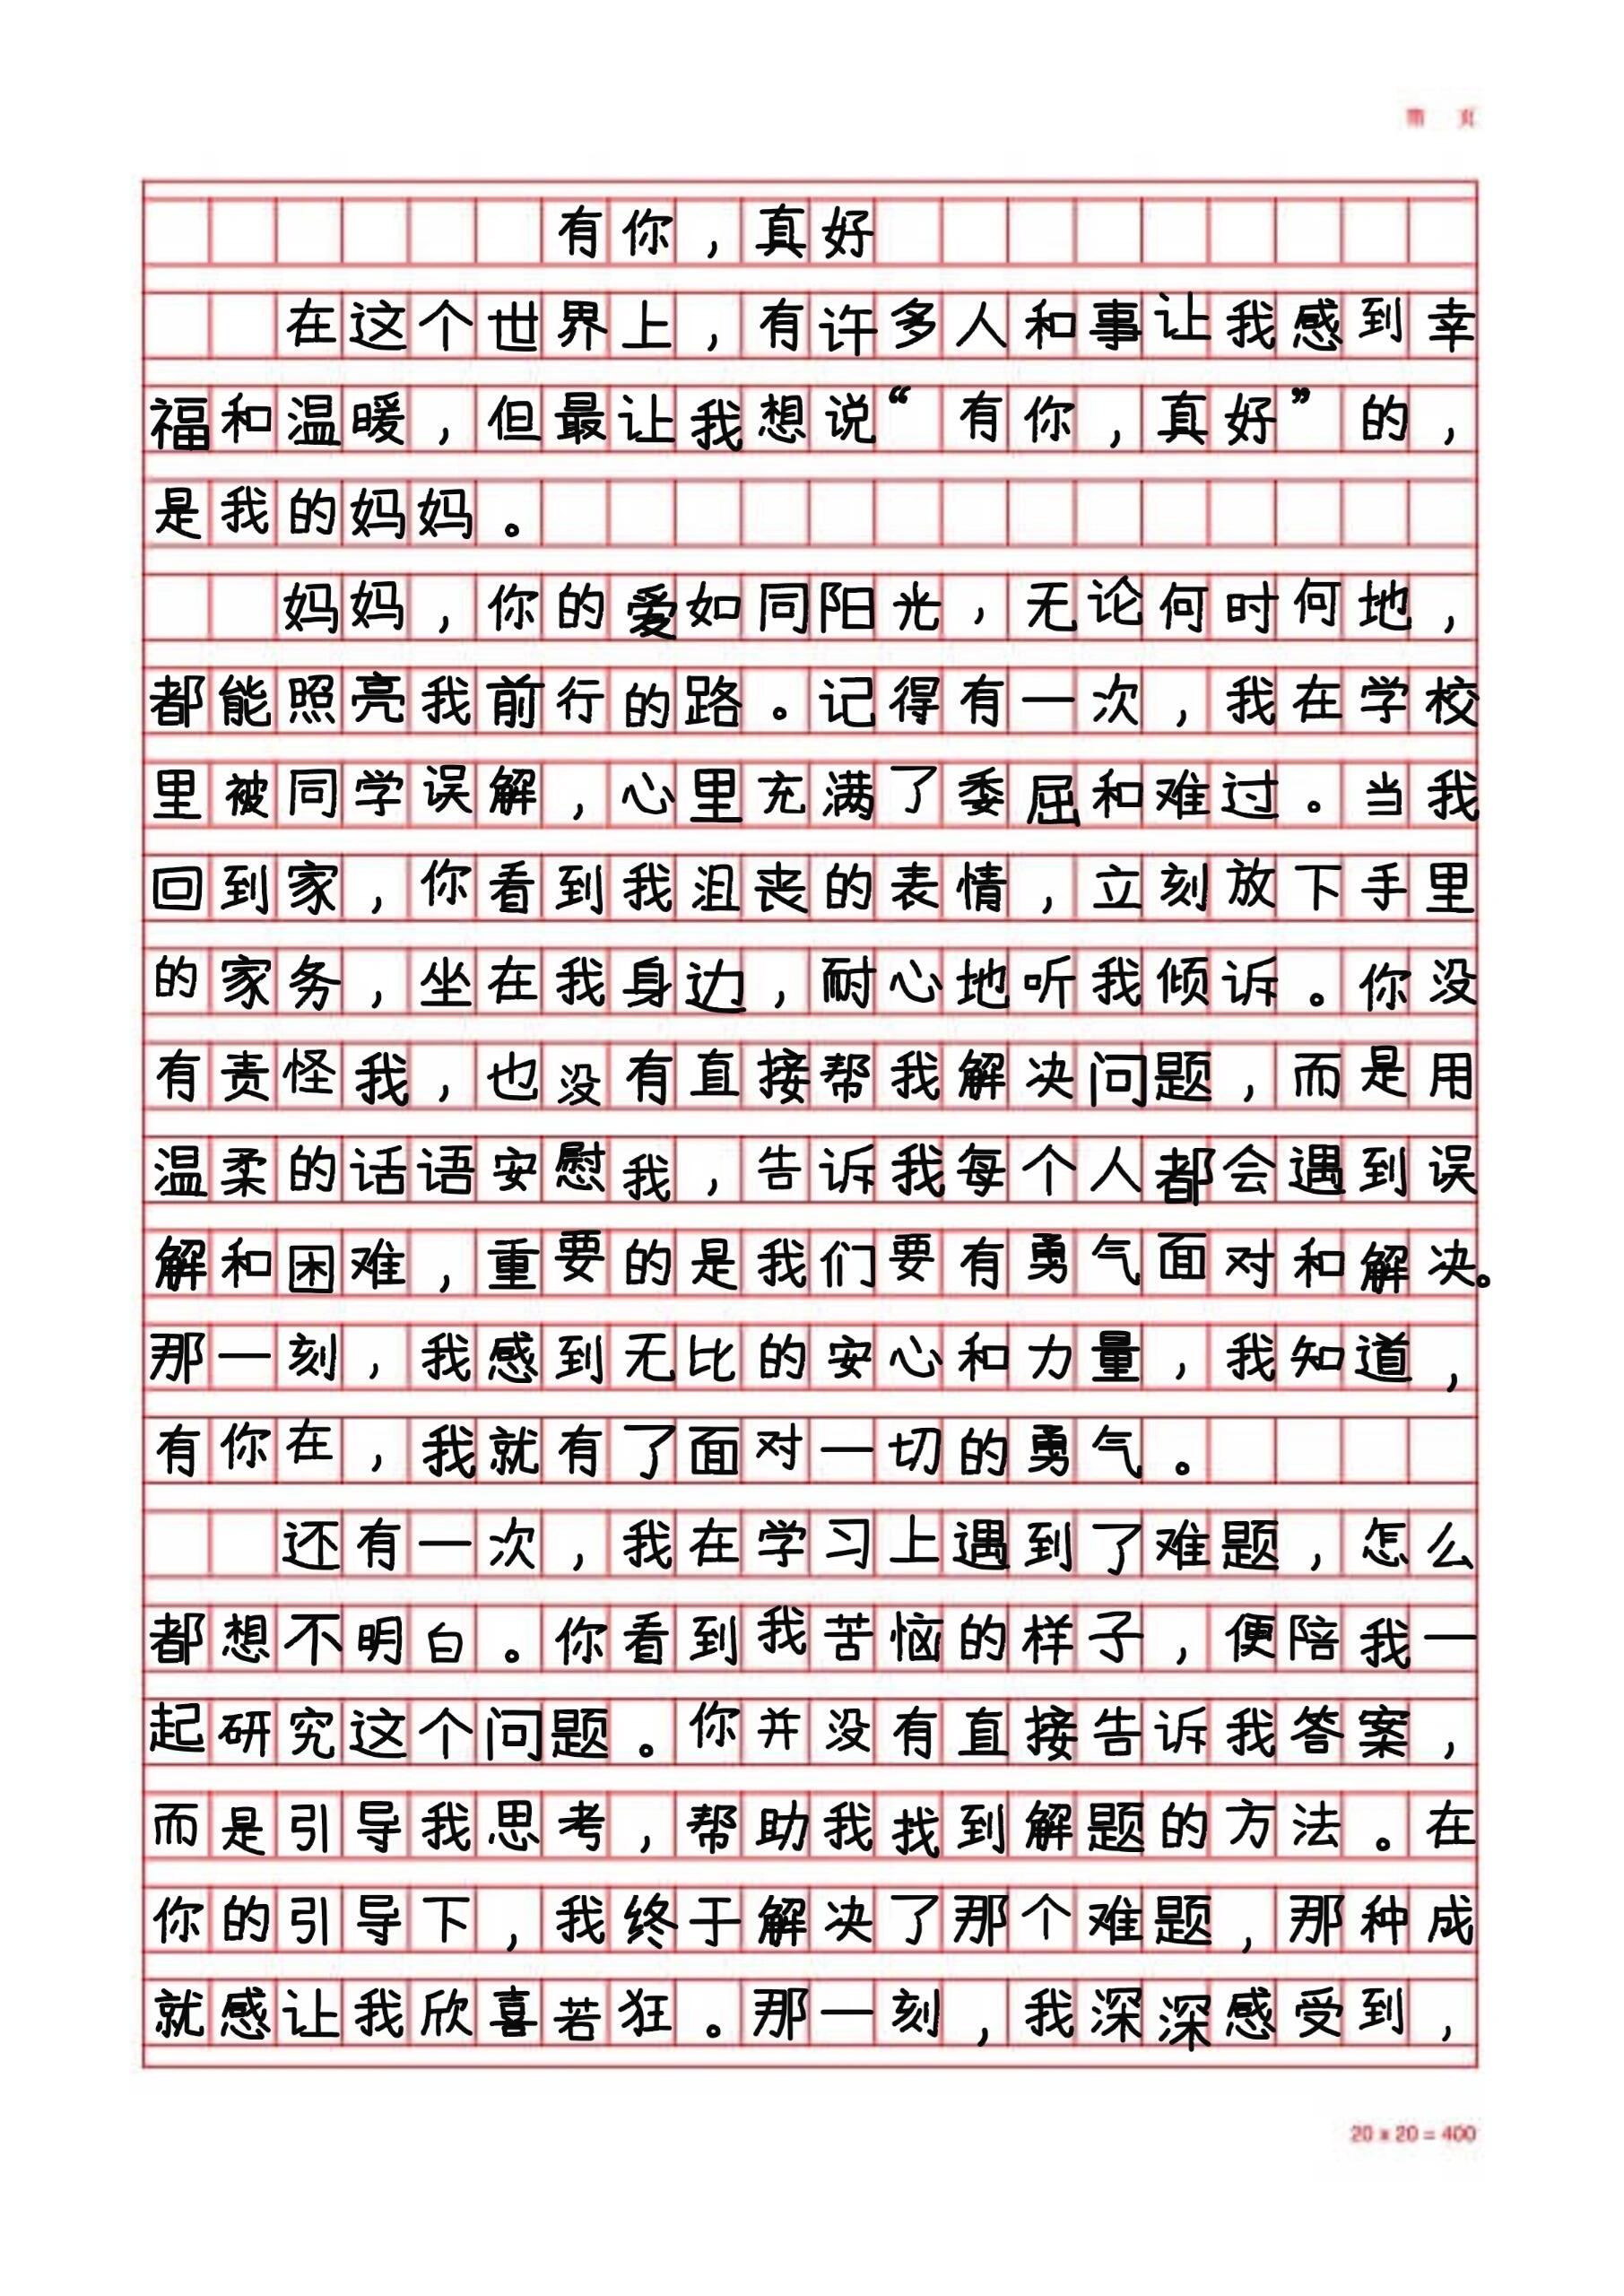 第 页
有你，真好
在这个世界上，有许多人和事让我感到幸
福和温暖，但最让我想说“有你，真好”的，
是我的妈妈。
妈妈，你的爱如同阳光，无论何时何地，
都能照亮我前行的路。记得有一次，我在学校
里被同学误解，心里充满了委屈和难过。当我
回到家，你看到我沮丧的表情，立刻放下手里
的家务，坐在我身边，耐心地听我倾诉。你没
有责怪我，也没有直接帮我解决问题，而是用
温柔的话语安慰我，告诉我每个人都会遇到误
解和困难，重要的是我们要有勇气面对和解决。
那一刻，我感到无比的安心和力量，我知道，
有你在，我就有了面对一切的勇气。
还有一次，我在学习上遇到了难题，怎么
都想不明白。你看到我苦恼的样子，便陪我一
起研究这个问题。你并没有直接告诉我答案，
而是引导我思考，帮助我找到解题的方法。在
你的引导下，我终于解决了那个难题，那种成
就感让我欣喜若狂。那一刻，我深深感受到，
20 x 20 = 400